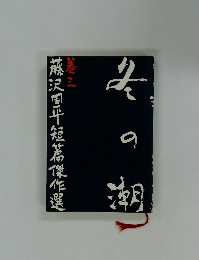 冬の潮
巻三
藤沢周平短篇傑作選